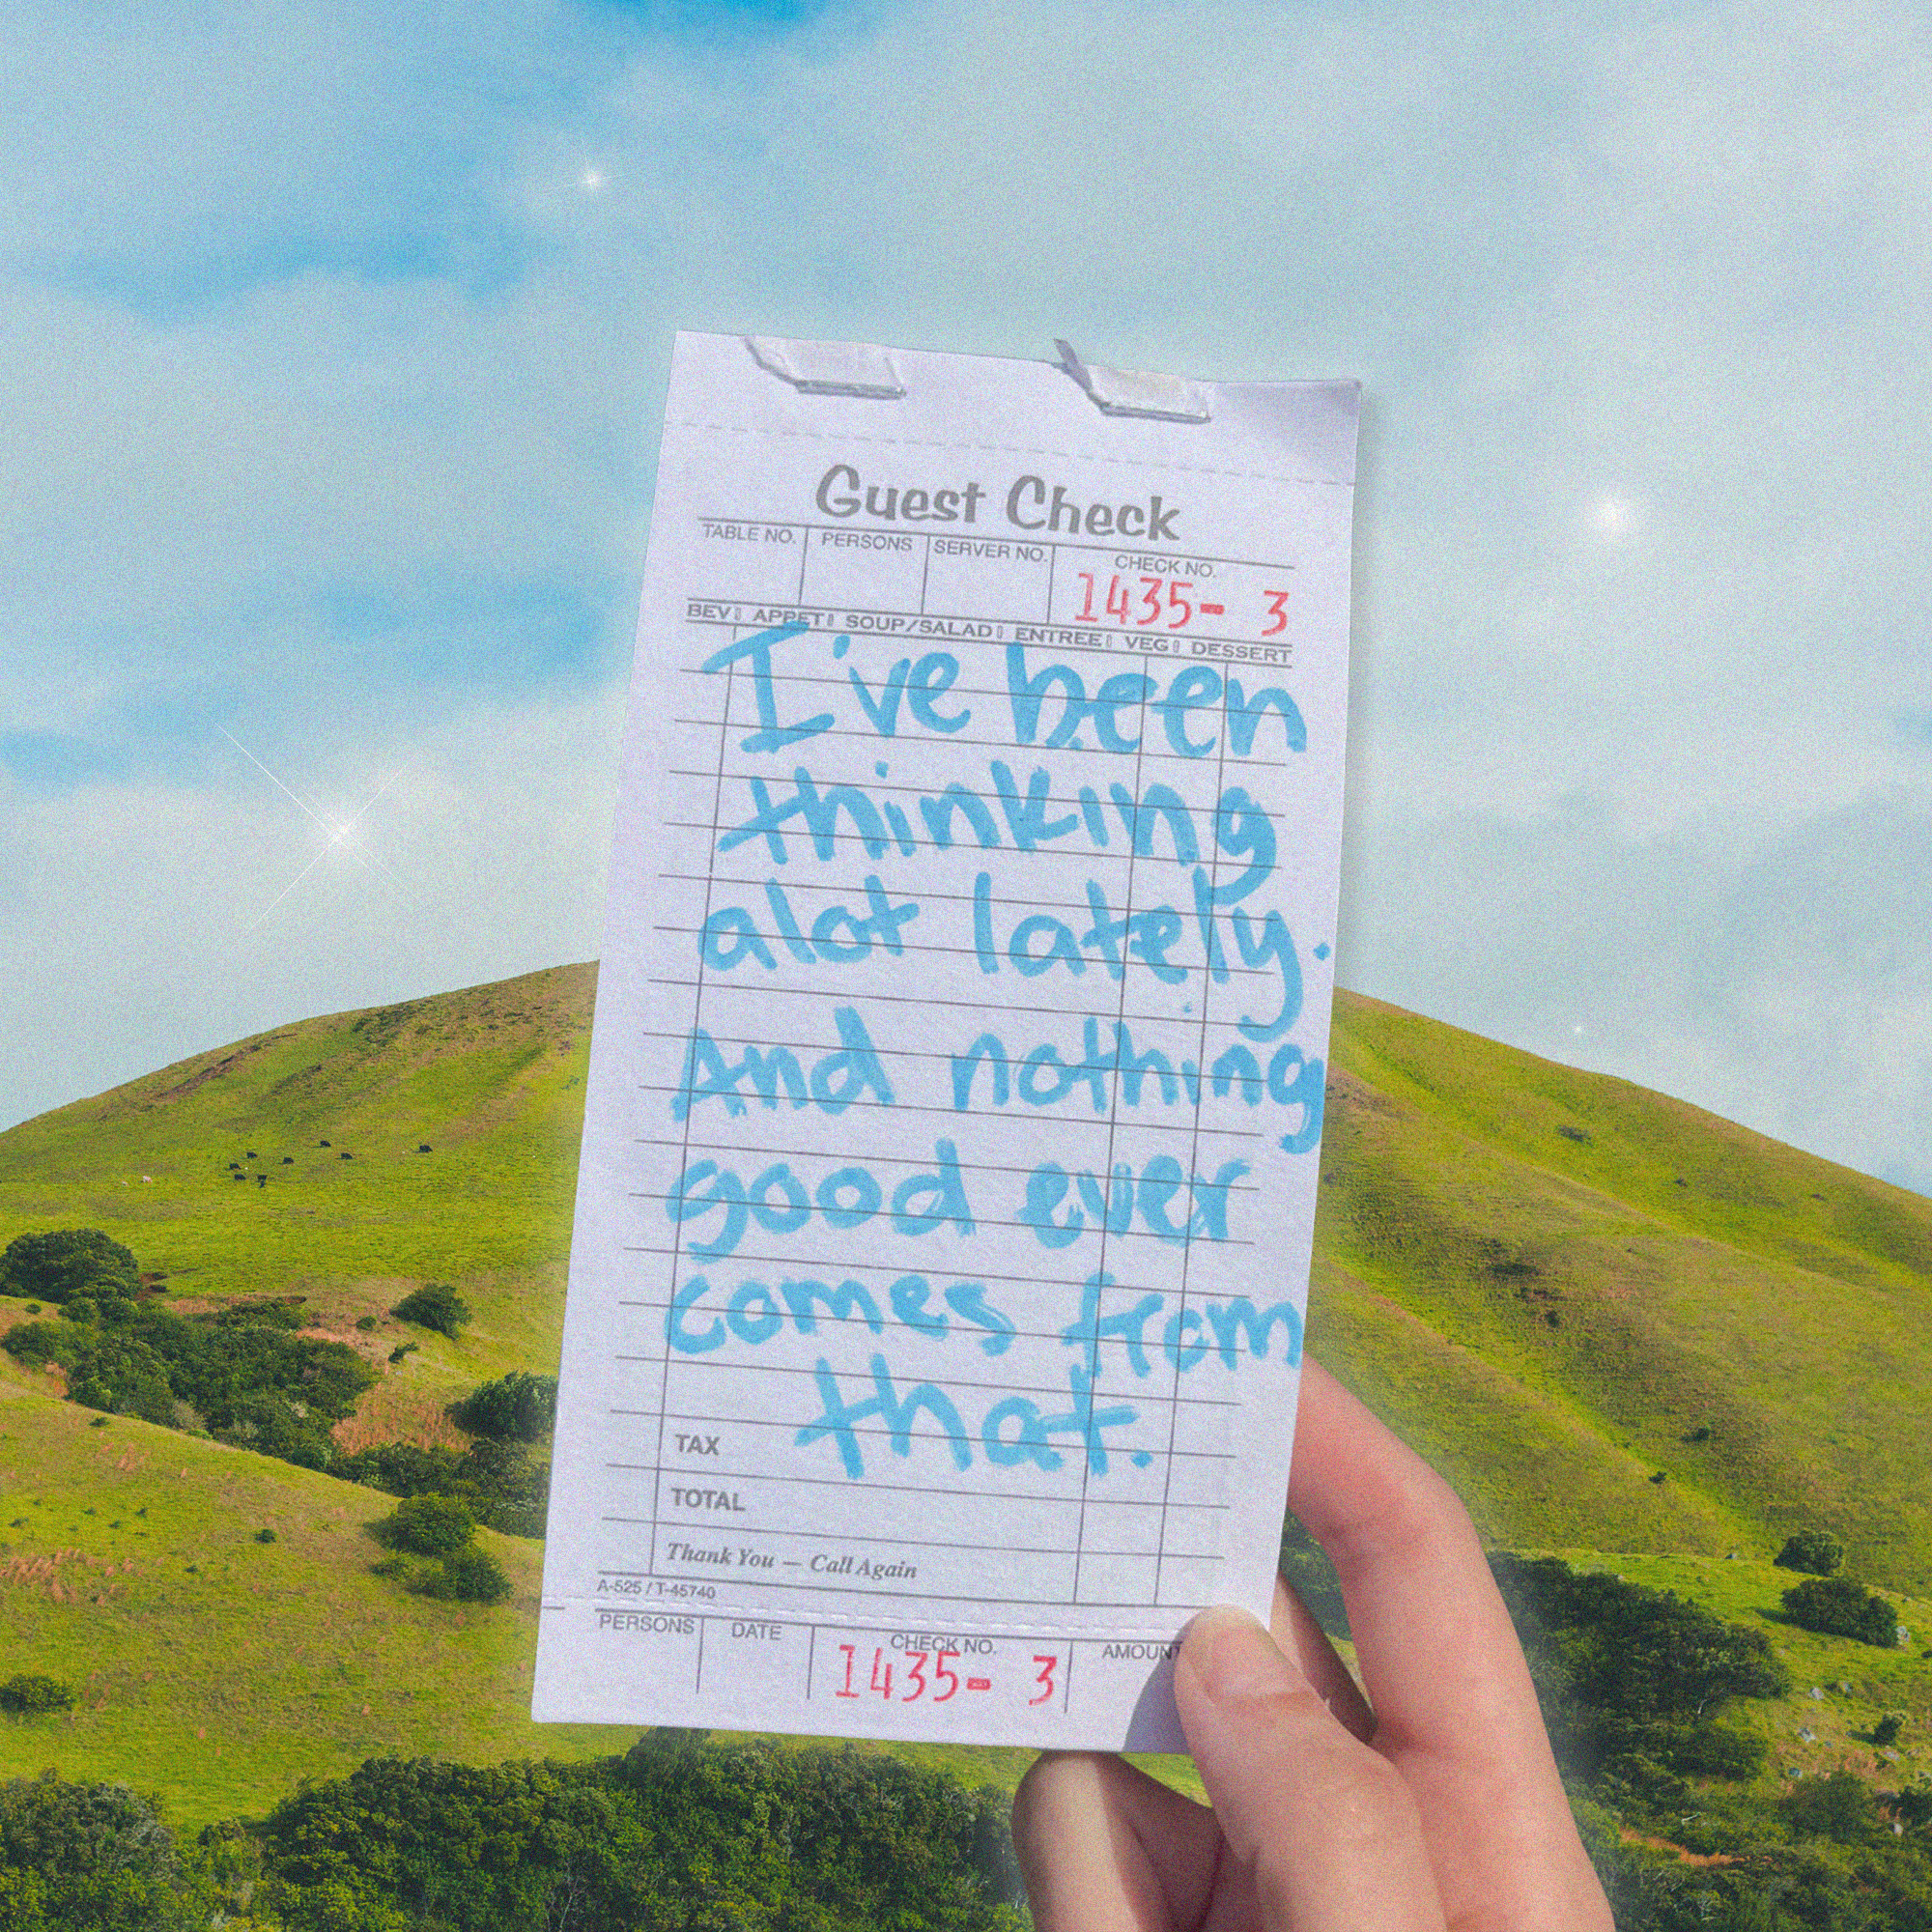 Guest Check
TABLE NO. PERSONS SERVER NO. CHECK NO.
1435- 3
BEV APPET SOUP/SALAD ENTREE VEG DESSERT
I've been
thinking
alot lately.
And nothing
good ever
comes from
that.
TAX
TOTAL
Thank You — Call Again
A-525 / T-45740
PERSONS DATE CHECK NO. AMOUNT
1435- 3